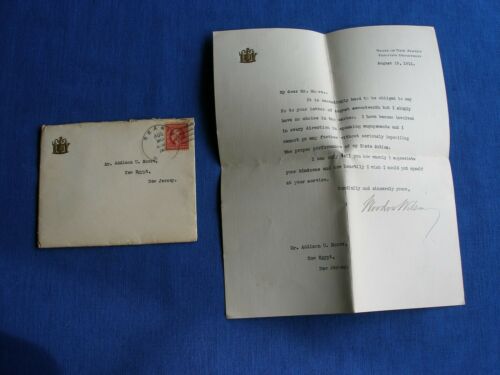 Mr. Addison U. Moore,
New Egypt,
New Jersey.
STATE OF NEW JERSEY
EXECUTIVE DEPARTMENT
August 19, 1911.
My dear Mr. Moore:
It is hard to be obliged to say
No to your letter of August seventeenth but I simply
have no choice in the matter. I have become involved
in every direction in speaking engagements and I
cannot go any further without seriously impairing
the proper performance of my State duties.
I can only tell you how warmly I appreciate
your kindness and how heartily I wish I could put myself
at your service.
Cordially and sincerely yours,
Woodrow Wilson
Mr. Addison U. Moore,
New Egypt,
New Jersey.